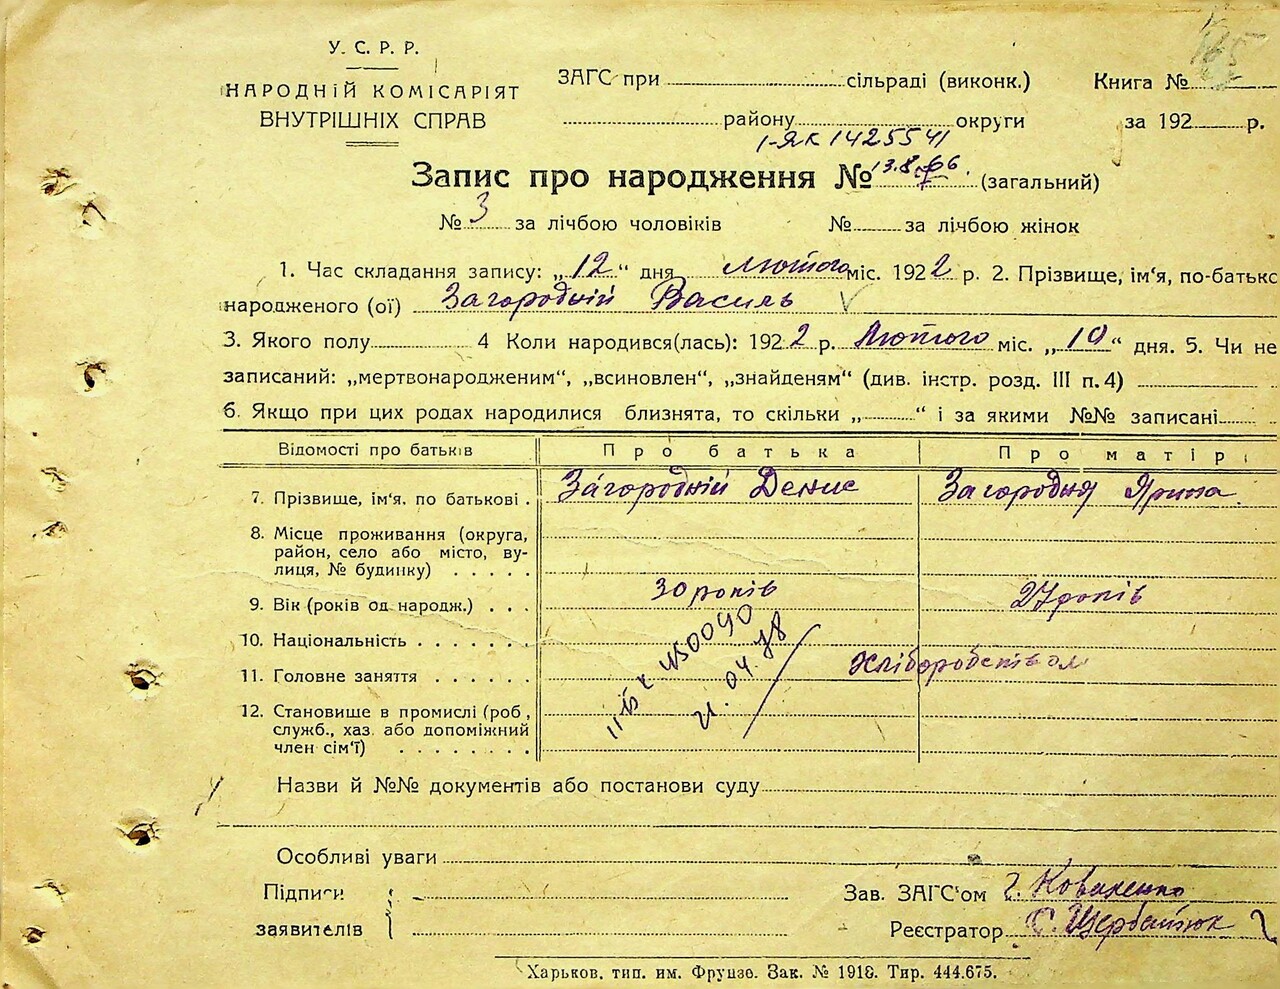 У. С. Р. Р.
НАРОДНІЙ КОМІСАРІЯТ
ВНУТРІШНІХ СПРАВ
ЗАГС при сільраді (виконк.)
Книга №
району округи
за 192 р.
1-ЯК 1425541
Запис про народження № 13.8.66. (загальний)
№ 3 за лічбою чоловіків № за лічбою жінок
1. Час складання запису: „12“ дня Лютого міс. 1922 р. 2. Прізвище, ім‘я, по-батькс
народженого (ої) Загородній Василь
3. Якого полу 4 Коли народився(лась): 1922 р. Лютого міс. „10“ дня. 5. Чи не
записаний: „мертвонародженим“, „всиновлен“, „знайденям“ (див. інстр. розд. III п. 4)
6. Якщо при цих родах народилися близнята, то скільки „ “ і за якими №№ записані
Відомості про батьків Про батька Про матір
7. Прізвище, ім‘я. по батькові . Загородній Денис Загородня Ярина
8. Місце проживання (округа,
район, село або місто, ву-
лиця, № будинку) . . . . .
9. Вік (років од народж.) . . . 30 років 27 років
10. Національність . . . . . .
11. Головне заняття . . . . . . Хліборобством
12. Становище в промислі (роб,
служб., хаз. або допоміжний
член сім‘ї) . . . . . . . .
450090
21.04.78
Назви й №№ документів або постанови суду
Особливі уваги
Підписи
заявителів
Зав. ЗАГС‘ом Г. Коваленко
Реєстратор С. Щербатюк
Харьков, тип. им. Фрунзе. Зак. № 1918. Тир. 444.675.